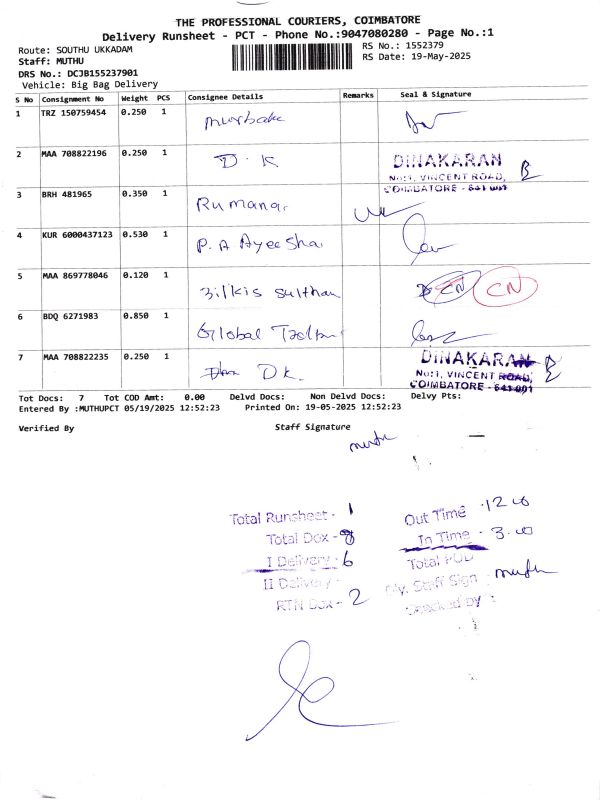 THE PROFESSIONAL COURIERS, COIMBATORE
Delivery Runsheet - PCT - Phone No.:9047080280 - Page No.:1
Route: SOUTHU UKKADAM
RS No.: 1552379
Staff: MUTHU
RS Date: 19-May-2025
DRS No.: DCJB155237901
Vehicle: Big Bag Delivery
S No Consignment No Weight PCS Consignee Details Remarks Seal & Signature
1 TRZ 150759454 0.250 1
2 MAA 708822196 0.250 1 D.K DINAKARAN
No:1, VINCENT ROAD,
COIMBATORE - 641 001
3 BRH 481965 0.350 1 Rumana.
4 KUR 6000437123 0.530 1 P.A Ayeesha.
5 MAA 869778046 0.120 1 Bilkis Sulthan CN CN
6 BDQ 6271983 0.850 1 Global
7 MAA 708822235 0.250 1 DK. DINAKARAN
No:1, VINCENT ROAD,
COIMBATORE - 641 001
Tot Docs: 7 Tot COD Amt: 0.00 Delvd Docs: Non Delvd Docs: Delvy Pts:
Entered By :MUTHUPCT 05/19/2025 12:52:23 Printed On: 19-05-2025 12:52:23
Verified By Staff Signature
muthu
Total Runsheet - 1 Out Time - 12.00
Total Dox - In Time - 3.00
I Delivery - 6 Total POD
II Delivery - Dly. Staff Sign : muthu
RTN Dox - 2 Checked by :